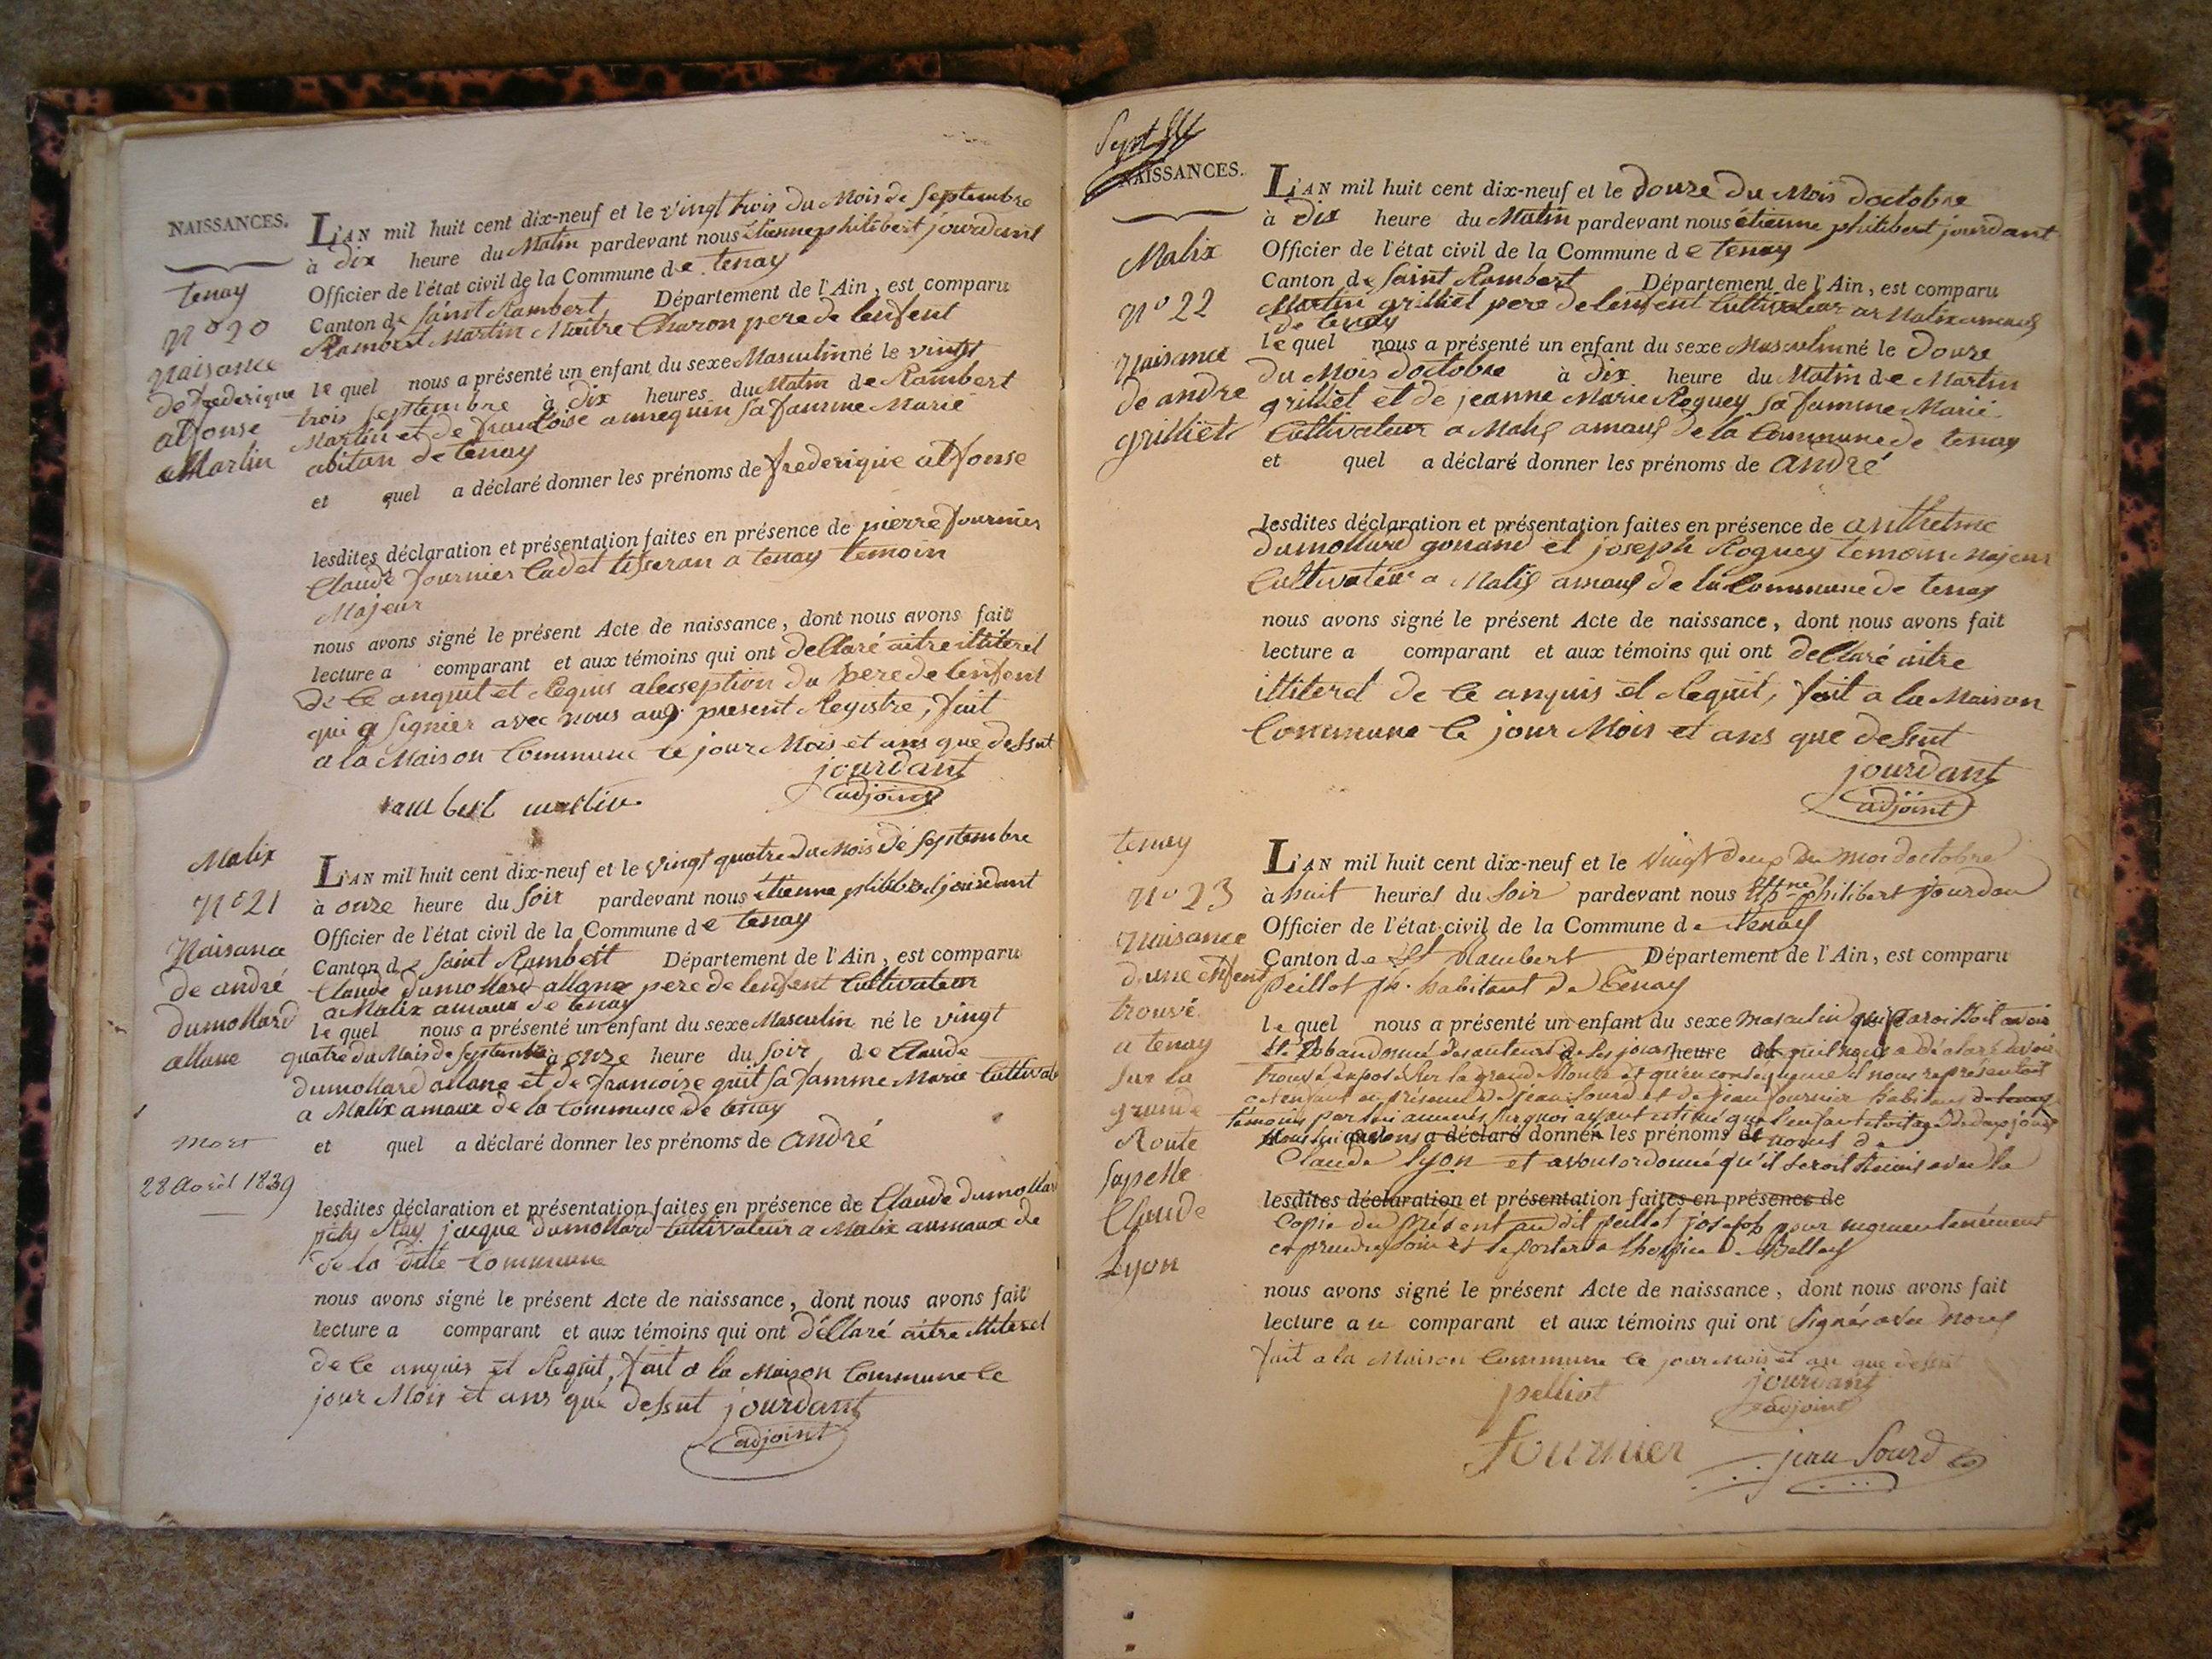 NAISSANCES.
tenay
n° 20
naisance
de frederique
alfonse
Martin
L'AN mil huit cent dix-neuf et le vingt trois du Mois de Septembre
à dix heure du Matin pardevant nous étienne philibert jourdant
Officier de l'état civil de la Commune de tenay
Canton de Saint Rambert Département de l'Ain, est comparu
Rambert Martin Maitre Charon pere de lenfent
le quel nous a présenté un enfant du sexe Masculin né le vingt
trois septembre à dix heures du Matin de Rambert
Martin et de francoise annequin sa famme Marié
abitan de tenay
et quel a déclaré donner les prénoms de frederique alfonse
lesdites déclaration et présentation faites en présence de pierre fournier
Claude fournier Cadet tisseran a tenay temoin
Majeur
nous avons signé le présent Acte de naissance, dont nous avons fait
lecture a comparant et aux témoins qui ont dellaré aitre illiteret
de ce anquit et Requis aleseption du pere de lenfent
qui a signier avec nous aug. present Registre, fait
a la Maison Commune le jour Mois et ans que dessut
jourdant
adjoint
rambert martin
Malix
n° 21
Naisance
de andré
dumollard
allane
mort
28 Août 1839
L'AN mil huit cent dix-neuf et le vingt quatre du Mois de Septembre
à onze heure du Soir pardevant nous étienne philibert jourdant
Officier de l'état civil de la Commune de tenay
Canton de Saint Rambert Département de l'Ain, est comparu
Claude dumollard allane pere de lenfent Cultivateur
a Malix amaux de tenay
le quel nous a présenté un enfant du sexe Masculin né le vingt
quatre du Mois de Septembre à onze heure du Soir de Claude
dumollard allane et de francoise gruit sa famme Marié Cultivat
a Malix amaux de la Commune de tenay
et quel a déclaré donner les prénoms de andré
lesdites déclaration et présentation faites en présence de Claude dumollar
jacque dumollard Cultivateur a Malix aumaux de
de la ditte Commune
nous avons signé le présent Acte de naissance, dont nous avons fait
lecture a comparant et aux témoins qui ont déllaré aitre illiteret
de ce anquis et Requit, fait a la Maison Commune le
jour Mois et ans que dessut jourdant
adjoint
NAISSANCES.
Malix
n° 22
naisance
de andre
grilliet
L'AN mil huit cent dix-neuf et le douze du Mois doctobre
à dix heure du Matin pardevant nous étienne philibert jourdant
Officier de l'état civil de la Commune de tenay
Canton de Saint Rambert Département de l'Ain, est comparu
Martin grilliet pere de lenfent Cultivateur a Malix amaux
de tenay
le quel nous a présenté un enfant du sexe Masculin né le douze
du Mois doctobre à dix heure du Matin de Martin
grilliet et de jeanne Marie Roguey sa famme Marié
Cultivateur a Malix amaux de la Commune de tenay
et quel a déclaré donner les prénoms de andré
lesdites déclaration et présentation faites en présence de anthelme
dumollard gonand et joseph Roguey temoin Majeur
Cultivateur a Malix amaux de la Commune de tenay
nous avons signé le présent Acte de naissance, dont nous avons fait
lecture a comparant et aux témoins qui ont dellaré aitre
illiteret de ce anquis et Requit, fait a la Maison
Commune le jour Mois et ans que dessut
jourdant
adjoint
tenay
n° 23
Naisance
dune enfent
trouvé
a tenay
sur la
grande
Route
sapelle
Claude
Lyon
L'AN mil huit cent dix-neuf et le vingt deux du mois doctobre
à huit heures du Soir pardevant nous philibert jourdan
Officier de l'état civil de la Commune de Tenay
Canton de St Rambert Département de l'Ain, est comparu
Peillot habitant de Tenay
le quel nous a présenté un enfant du sexe masculin qui paroissoit avoir
été abandonné des auteurs de ses jours heure et quil nous a déclaré avoir
trouvé exposé sur la grande Route et qu'en conséquence il nous représentoit
cet enfant en présence de jean Sourd et de jean fournier habitans de tenay
témoins par lui amenés, sur quoi ayant estimé que l'enfant etoit agé de deux jours
Nous lui avons a déclaré donner les prénoms et noms de
Claude Lyon et avons ordonné qu'il seroit remis avec la
lesdites déclaration et présentation faites en présence de
Copie du présent audit peillot joseph pour momentanément
en prendre soin et le porter a l'hospice de Belley
nous avons signé le présent Acte de naissance, dont nous avons fait
lecture au comparant et aux témoins qui ont signés avec nous
fait a la Maison Commune le jour mois et an que dessut
pelliot
jourdant
adjoint
fournier
jean Sourd